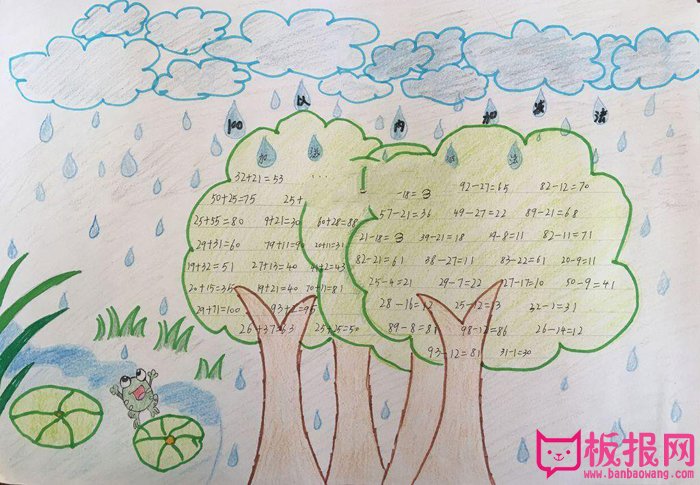 100 以 内 加 减 法
加 法
减 法
32+21=53
50+25=75 25+
25+55=80 9+21=30 60+28=88
29+31=60 79+11=90 20+11=31
19+32=51 27+13=40
20+15=35 19+21=40 70+11=81
29+71=100 93+2=95
26+37=63 25+25=50
-18=3 92-27=65 82-12=70
57-21=36 49-27=22 89-21=68
21-18=3 39-21=18 19-8=11 82-11=71
82-21=61 38-27=11 83-22=61 20-9=11
25-4=21 29-7=22 27-17=10 50-9=41
28-16=12 25-12=13 32-1=31
89-8=81 98-12=86 26-14=12
93-12=81 31-1=30
板报网
www.banbaowang.com